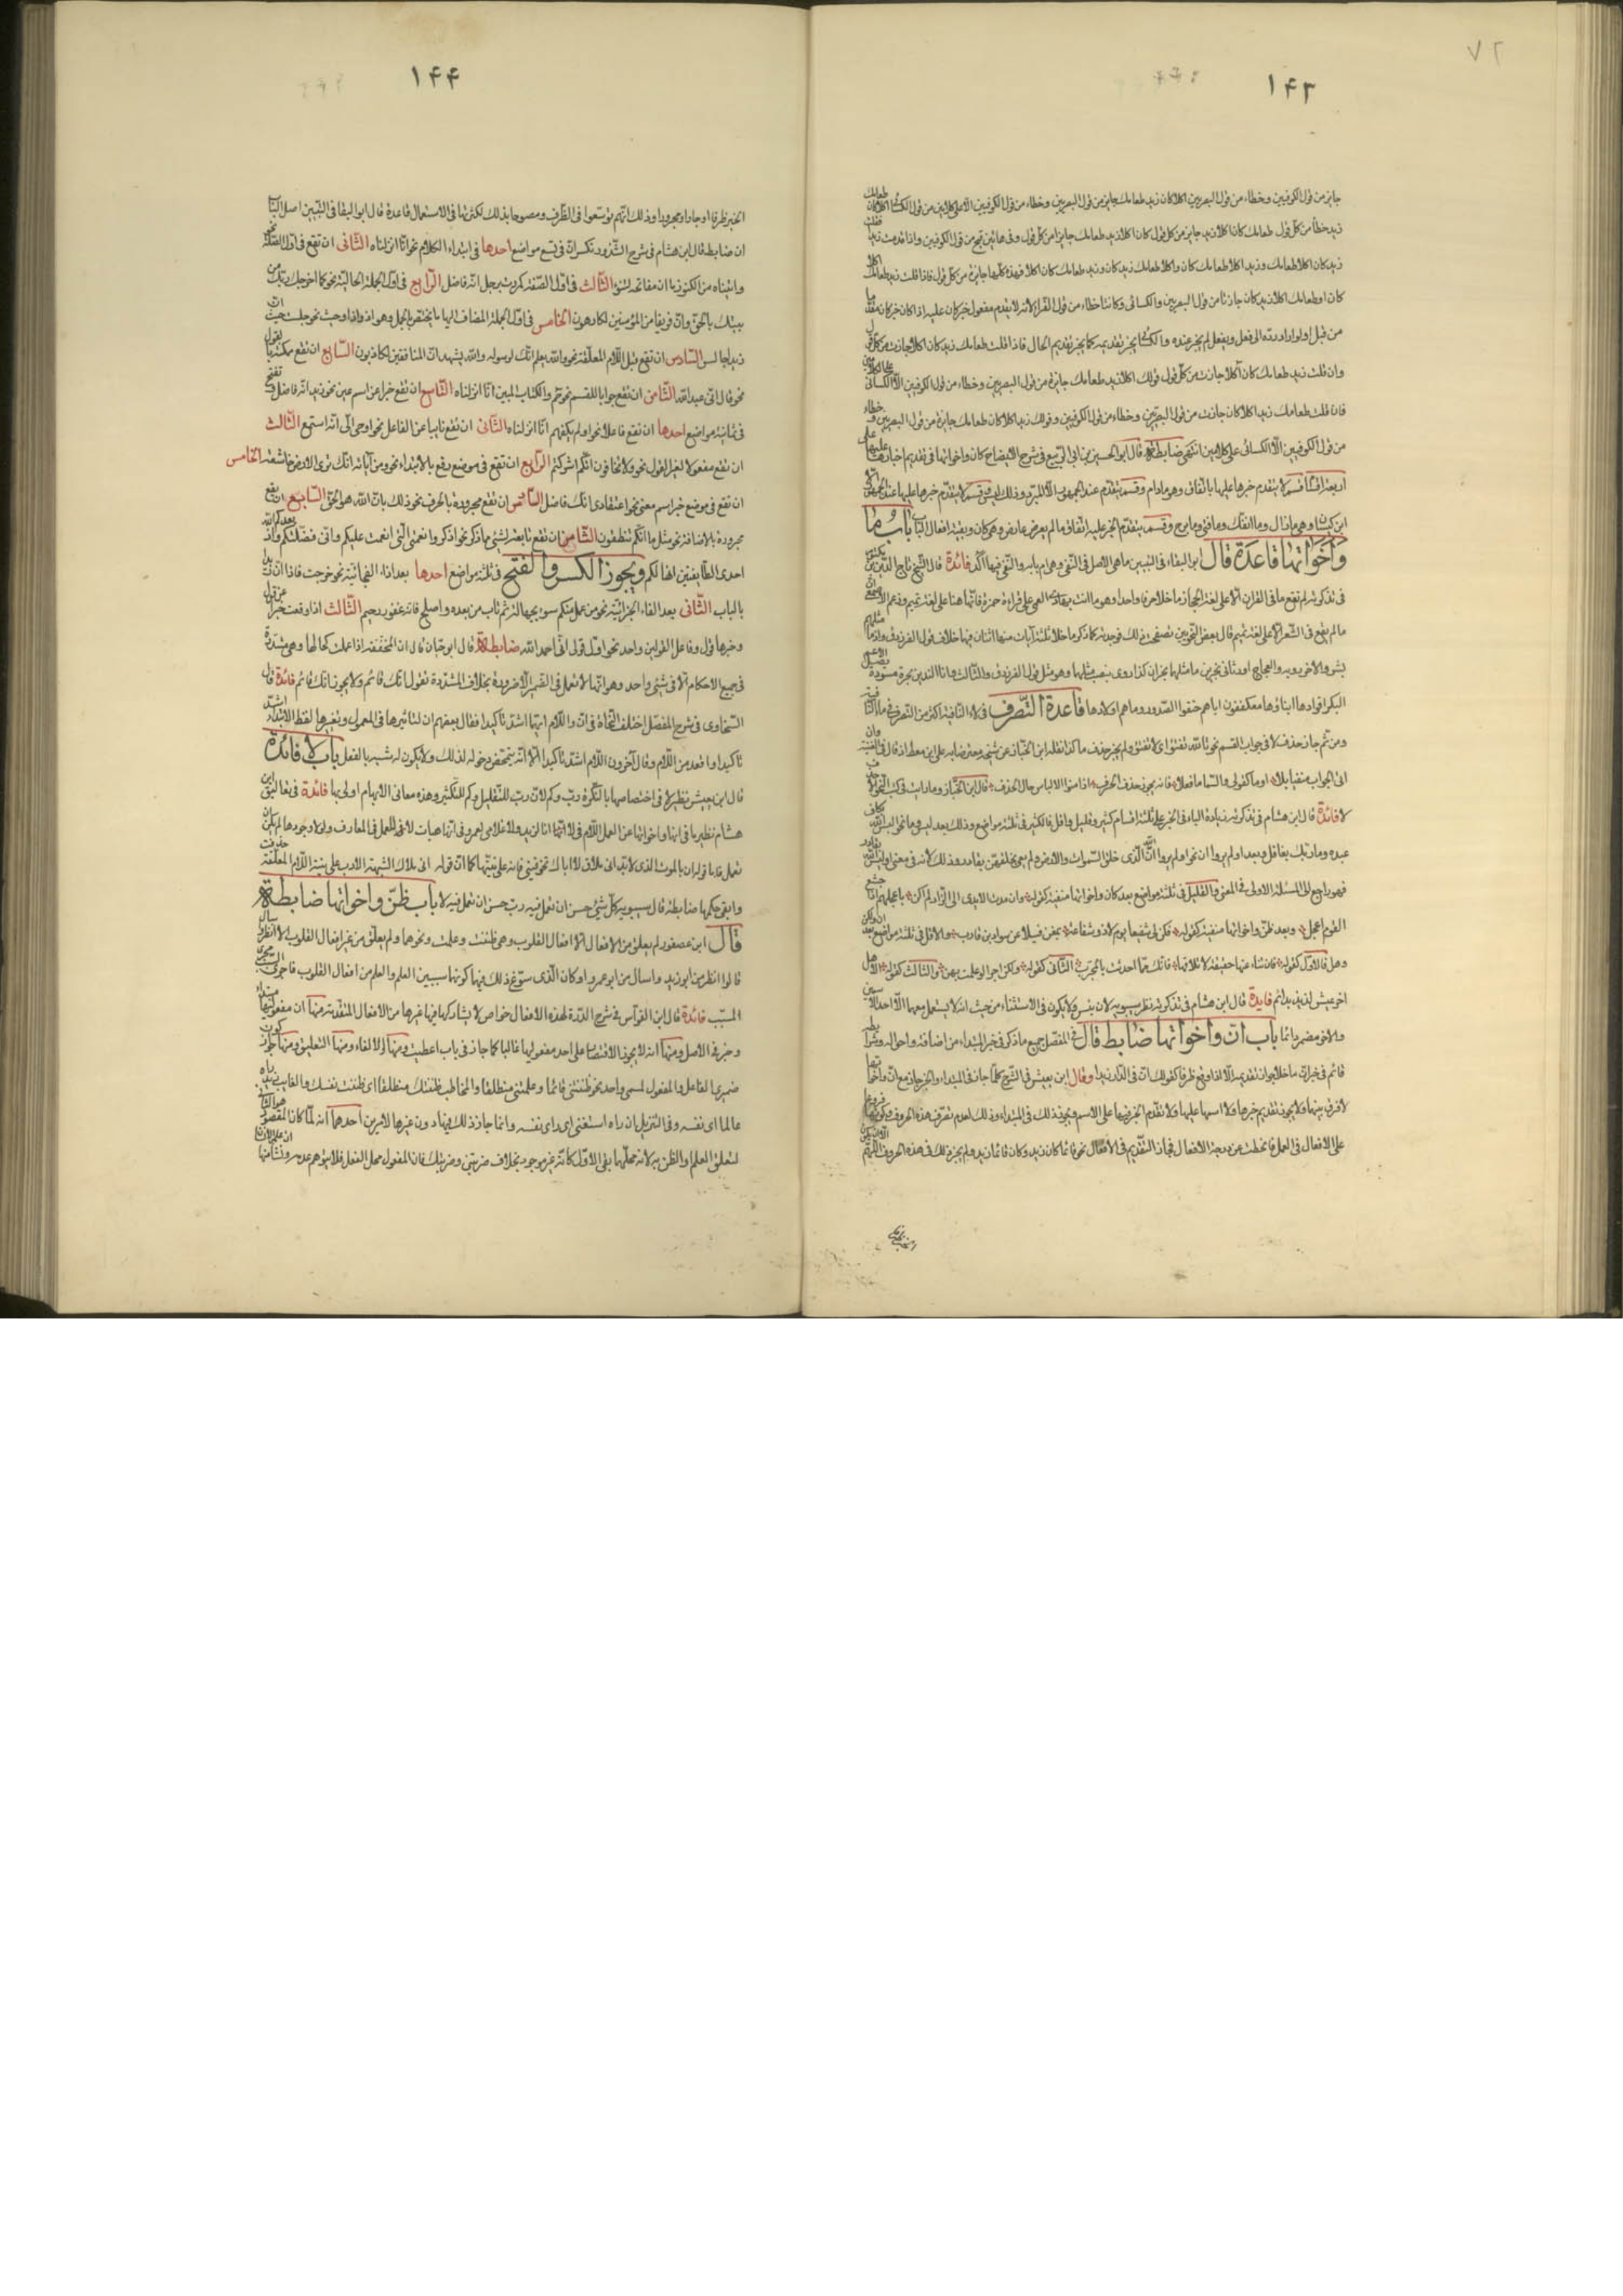 ٧٢
١٤٣
جايز من قول الكوفيين وخطاء من قول البصريين اكلا كان زيد طعامك جايز من قول البصريين وخطاء من قول الكوفيين الا على كلامين من قول الكسائى اكلا كان طعامك
زيد خطأ من كل قول طعامك كان اكلا زيد جايز من كل قول كان اكلا زيد طعامك جايزا من كل قول وفى هاتين قبح من قول الكوفيين واذا قدمت زيد فقلت
زيد كان اكلا طعامك وزيد اكلا طعامك كان واكلا طعامك زيد كان وزيد طعامك كان اكلا فهذه كلها جايزة من كل قول فاذا قلت زيد طعامك اكلا
كان او طعامك اكلا زيد كان جازتا من قول البصريين والكسائى وكانتا خطاء من قول الفراء لانه لا يقدم مفعول خبر كان عليه اذا كان خبر كان مقدما
من قبل او لو اراد رده الى فعل ويفعل لم يجز عنده والكسائى يجيز تقديمه كما يجيز تقديم الحال فاذا قلت طعامك زيد كان اكلا جازت من كل قول
وان قلت زيد طعامك كان اكلا جازت من كل قول قولك اكلا زيد طعامك جايزة من قول البصريين وخطاء من قول الكوفيين الا الكسائى على كلامين
فان قلت طعامك زيد اكلا كان جازت من قول البصريين وخطاء من قول الكوفيين وقولك زيد اكلا كان طعامك جايزة من قول البصريين وخطاء
من قول الكوفيين الا الكسائى على كلامين انتهى ضابطة قال ابو الحسين بن ابى الربيع فى شرح الايضاح كان واخواتها فى تقديم اخبارها عليها على
اربعة اقسام قسم لا يتقدم خبرها عليها باتفاق وهو مادام وقسم يتقدم عند الجمهور الا المبرد وذلك ليس وقسم لا يتقدم خبرها عليها عند الجمهور الا
ابن كيسان وهى مازال وما انفك وما فتئ وما برح وقسم يتقدم الخبر عليه اتفاقا ما لم يعرض عارض وهى كان وبقية افعال الباب باب ما
واخواتها قاعدة قال ابن البقاء فى التبيين ما هى الاصل فى النفى وهى ام بابه والنفى فيها اكد فائدة قال الشيخ تاج الدين بن مكتوم
فى تذكرته لم تقع ما فى القرآن الا على لغة الحجاز ما خلا حرفا واحدا وهو وما انت بهادى العمى على قراءة حمزة فانها هنا على لغة تميم وزعم الاصمعى ان
ما لم يقع فى الشعر الا على لغة تميم قال بعض النحويين تصفحت ذلك فوجدته كما ذكر ما خلا ثلثة ابيات منها اثنان فيها خلاف قول الفرزدق واذ ما مثلهم
بشر والاخر
البكر اقوادها ابناؤها متكنفون اباهم حنقوا الصدور وما هم اولادها قاعدة التصرف فى لا النافية اكثر من التصرف فى ما النافية
ومن ثم جاز حذف لا فى جواب القسم نحو تالله تفتؤ اى لا تفتؤ ولم يجز حذف ما كذا نقله ابن الخباز عن شيخه معترضا به على ابن معط اذ قال فى الفيته وان
اتى الجواب منفيا بلا او ما كقولى والسما ما فعلا فانه يجوز حذف الحرف اذ امنوا الالباس حال الحذف قال ابن الخباز وما رايت فى كتب النحو الا حذف
لا فائدة قال ابن هشام فى تذكرته زيادة الباء فى الخبر على ثلثة اقسام كثير وقليل واقل فالكثير فى ثلثة مواضع وذلك بعد ليس وما نحو اليس الله بكاف
عبده وما ربك بغافل وبعد اولم يروا ان نحو اولم يروا ان الله الذى خلق السموات والارض ولم يعى بخلقهن بقادر وذلك لانه فى معنى اوليس الله بقادر
فهو راجع الى المسئلة الاولى فى المعنى والقليل فى ثلثة مواضع بعد كان واخواتها منفية كقوله وان مدت الايدى الى الزاد لم اكن باعجلهم اذ اجشع
القوم اعجل وبعد ظن واخواتها منفية كقوله فكن لى شفيعا يوم لا ذو شفاعة بمغن فتيلا عن سواد بن قارب والاقل فى ثلثة مواضع بعد ان ولكن
وهل فالاول كقوله فان تنأ عنها حقبة لا تلاقها فانك مما احدثت بالمجرب الثانى كقوله ولكن اجرا لو علمت بهين والثالث كقوله الا هل
اخو عيش لذيذ بدائم فايدة قال ابن هشام فى تذكرته نظير سيبويه لات بليس ولا يكون فى الاستثناء من حيث انه لا يستعمل معها الا احد الاسمين
والاخر مضمر دائما باب ان واخواتها ضابط قال فى المفصل جميع ما ذكر فى خبر المبتداء من اصنافه واحواله وشرايطه
قائم فى خبر ان ما خلا جواز تقديمه الا اذا وقع ظرفا كقولك ان فى الدار زيدا وقال ابن يعيش فى الشرح كلما جاز فى المبتداء والخبر جاز مع ان واخواتها
لا فرق بينها ولا يجوز تقديم خبرها ولا اسمها عليها ولا تقدم الخبر فيها على الاسم ويجوز ذلك فى المبتداء وذلك لعدم تصرف هذه الحروف وكونها فروعا
على الافعال فى العمل فانحطت عن درجة الافعال فجاز التقديم فى الافعال نحو قائما كان زيد وكان قائما زيد ولم يجز ذلك فى هذه الحروف اللهم الا ان يكون
١٤٤
الخبر ظرفا او جارا ومجرورا وذلك انهم توسعوا فى الظروف وخصوها بذلك لكثرتها فى الاستعمال قاعدة قال ابو البقاء فى التبيين اصل الباب
ان ضابط قال ابن هشام فى شرح الشذور تكسر ان فى تسع مواضع احدها فى ابتداء الكلام نحو انا انزلناه الثانى ان تقع فى اول الصلة نحو
واتيناه من الكنوز ما ان مفاتحه لتنوء الثالث فى اول الصفة كمررت برجل انه فاضل الرابع فى اول الجملة الحالية نحو كما اخرجك ربك من
بيتك بالحق وان فريقا من المؤمنين لكارهون الخامس فى اول الجملة المضاف اليها ما يختص بالجمل وهو اذ واذا وحيث نحو جلست حيث ان
زيدا جالس السادس ان تقع قبل اللام المعلقة نحو والله يعلم انك لرسوله والله يشهد ان المنافقين لكاذبون السابع ان تقع محكية بالقول
نحو قال انى عبد الله الثامن ان تقع جوابا للقسم نحو حم والكتاب المبين انا انزلناه التاسع ان تقع خبرا عن اسم عين نحو زيد انه فاضل وتفتح
فى ثمانية مواضع احدها ان تقع فاعلا نحو اولم يكفهم انا انزلناه الثانى ان تقع نايبا عن الفاعل نحو اوحى الى انه استمع الثالث
ان تقع مفعولا لغير القول نحو ولا تخافون انكم اشركتم الرابع ان تقع فى موضع رفع بالابتداء نحو ومن اياته انك ترى الارض خاشعة الخامس
ان تقع فى موضع خبر اسم معنى نحو اعتقادى انك فاضل السادس ان تقع مجرورة بالحرف نحو ذلك بان الله هو الحق السابع ان تقع
مجرورة بالاضافة نحو مثل ما انكم تنطقون الثامن ان تقع تابعة لشئ مما ذكر نحو اذكروا نعمتى التى انعمت عليكم وانى فضلتكم واذ يعدكم الله
احدى الطايفتين انها لكم ويجوز الكسر والفتح فى ثلثة مواضع احدها بعد اذا الفجائية نحو خرجت فاذا ان زيدا
بالباب الثانى بعد الفاء الجزائية نحو من عمل منكم سوء بجهالة ثم تاب من بعده واصلح فانه غفور رحيم الثالث اذا وقعت خبرا عن قول
وخبرها قول وفاعل القولين واحد نحو اول قولى انى احمد الله ضابطة قال ابو حيان قال ان المخففة اذا عملت كحالها وهى مشددة
فى جميع الاحكام الا فى شئ واحد وهو انها لا تعمل فى الضمير الا ضرورة بخلاف المشددة تقول انك قائم ولا يجوز انك قائم فائدة قال
السخاوى فى شرح المفصل اختلف النحاة فى ان واللام ايهما اشد تاكيدا فقال بعضهم ان لتاثيرها فى المعمول وتغييرها لفظ الابتداء اشد
تاكيدا واقعد من اللام وقال آخرون اللام اشد تاكيدا لانه يتمحض دخوله لذلك ولا يكون له شبه بالفعل باب لا فائدة
قال ابن يعيش نظير لا فى اختصاصها بالنكرة رب وكم لان رب للتقليل وكم للتكثير وهذه معانى الابهام اولى بها فائدة فى تعاليق ابن
هشام
تعمل قد
وابقى حكمها ضابطة قال سيبويه كل شئ حسن ان تعمل فيه رب حسن ان تعمل فيه لا باب ظن واخواتها ضابطة
قال ابن عصفور لم يعلق من الافعال الا افعال القلوب وهى ظننت وعلمت ونحوهما ولم يعلق من غير افعال القلوب الا انظر واسال
قالوا انظر من ابو زيد واسال من ابو عمرو وكان الذى سوغ ذلك فيهما كونهما سببين للعلم والعلم من افعال القلوب فاجرى السبب مجرى
المسبب فائدة قال ابن القواس فى شرح الدرة لهذه الافعال خواص لا يشاركها فيها غيرها من الافعال المتعدية منها ان مفعوليها مبتداء
وخبر فى الاصل ومنها انه لا يجوز الاقتصار على احد مفعوليها غالبا كما جاز فى باب اعطيت ومنها الالغاء ومنها التعليق ومنها جواز كون
ضميرى الفاعل والمفعول لمسمى واحد نحو ظننتنى قائما وعلمتنى منطلقا والمخاطب ظننتك منطلقا اى ظننت نفسك والغايب زيد راه
عالما اى نفسه وفى التنزيل ان راه استغنى اى راى نفسه وانما جاز ذلك فيها دون غيرها لامرين احدهما انه لما كان المقصود هو الثانى
لتعلق العلم والظن به لانه محلهما بقى الاول كانه غير موجود بخلاف ضربتنى وضربتك فان المفعول محل الفعل فلا يتوهم عدمه